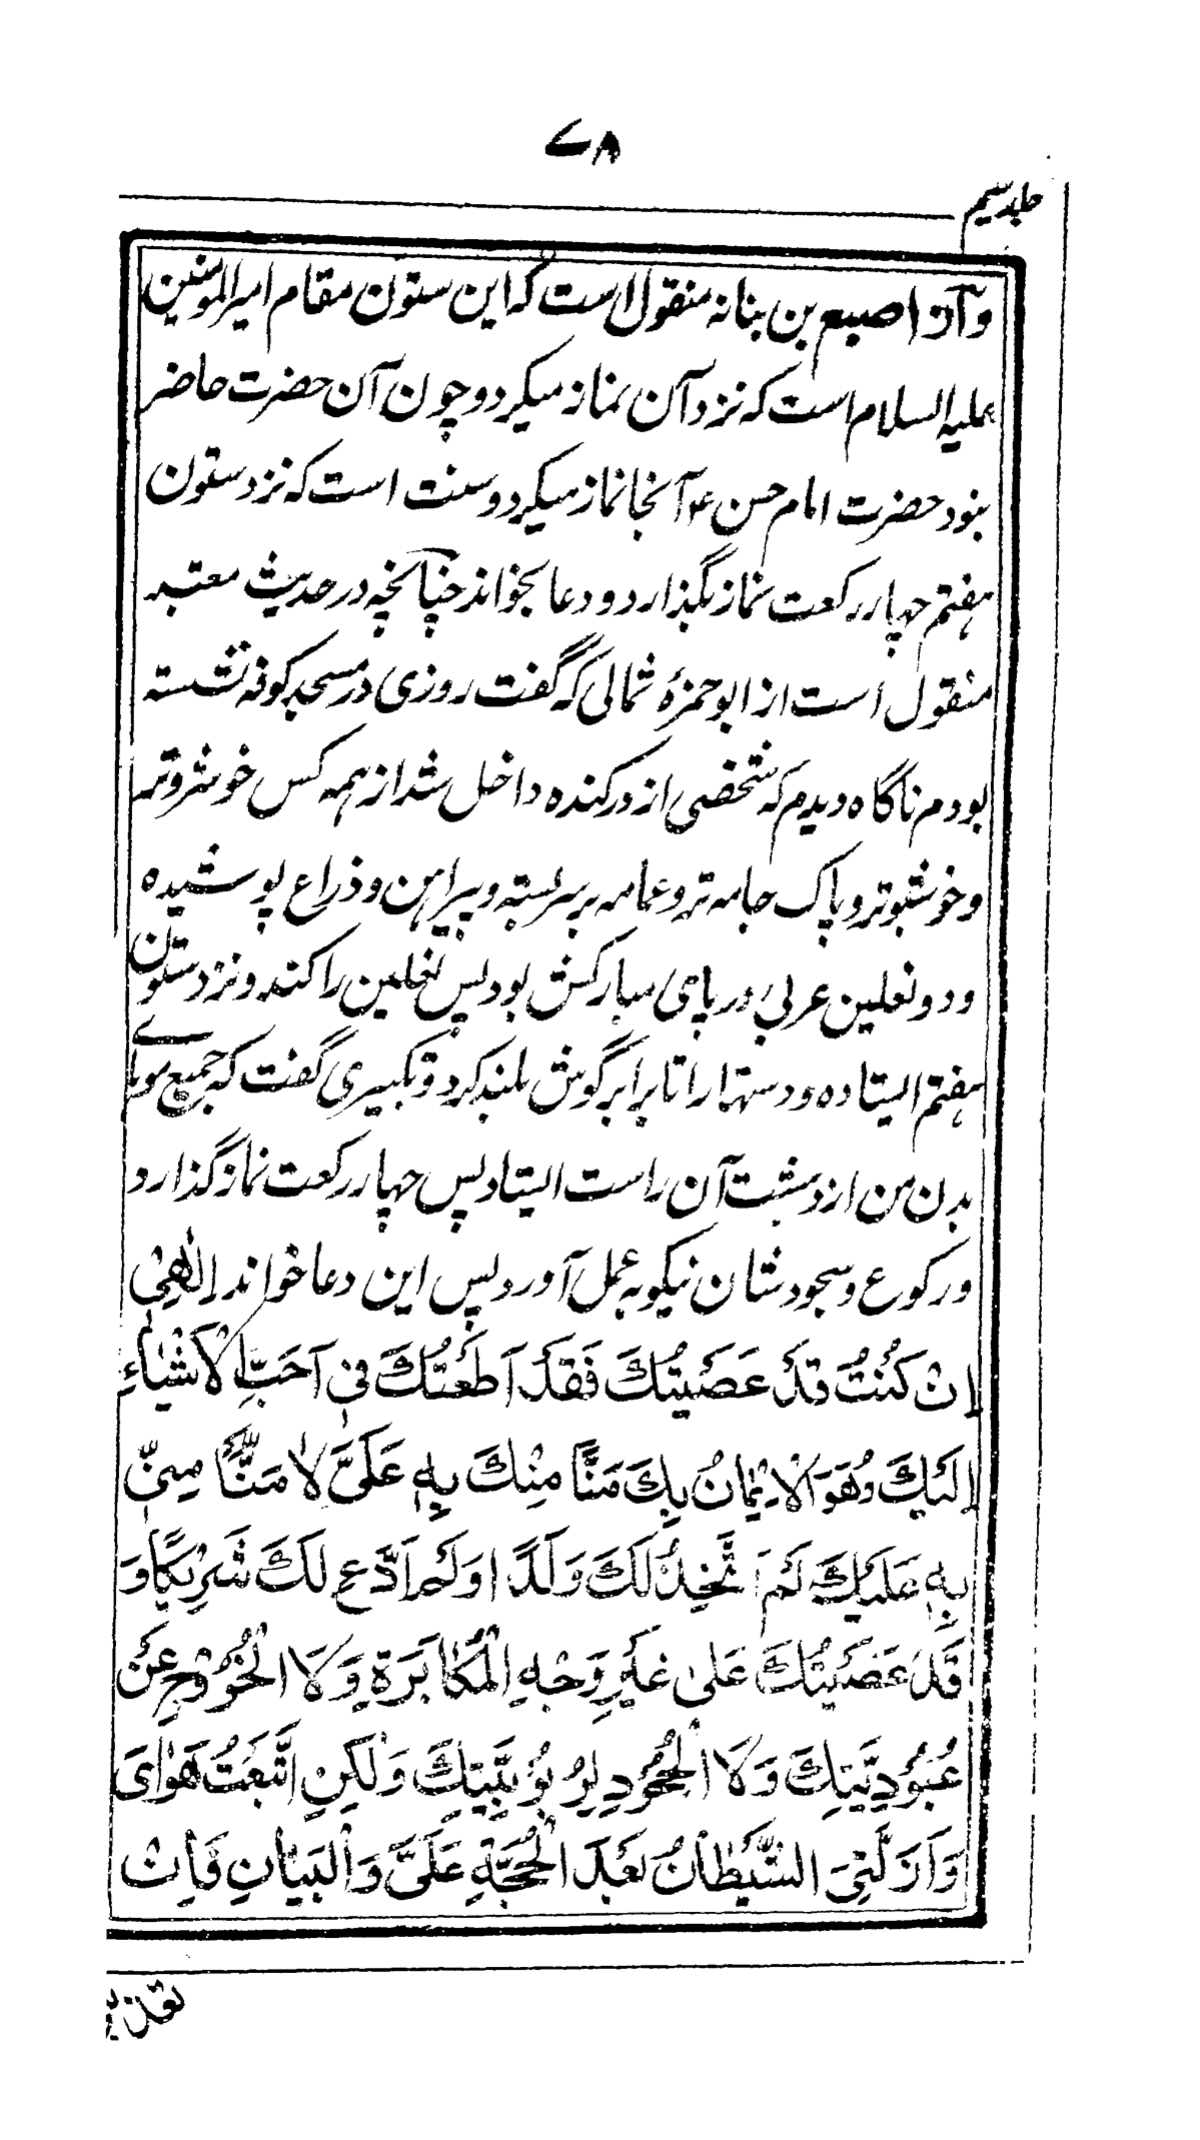 ۷۸
جلد سیم
و از اصبع بن بنانه منقول است که این ستون مقام امیرالمومنین
علیه السلام است که نزد آن نماز میکرد و چون آن حضرت حاضر
نبود حضرت امام حسن ع آنجا نماز میکرد و سنت است که نزد ستون
هفتم چهار رکعت نماز بگذارد و دعا بخواند چنانچه در حدیث معتبر
منقول است از ابو حمزهٔ ثمالی که گفت روزی در مسجد کوفه نشسته
بودم ناگاه دیدم که شخصی از در کنده داخل شد از همه کس خوشروتر
و خوشبوتر و پاک جامه تر و عمامه بر سر بسته و پیراهن و ذراع پوشیده
و دو نعلین عربی در پای مبارکش بود پس نعلین را کند و نزد ستون
هفتم ایستاده و دستها را تا برابر گوش بلند کرد و تکبیری گفت که جمیع موهای
بدن من از دهشت آن راست ایستاد پس چهار رکعت نماز گذارد و
رکوع و سجودشان نیکو بعمل آورد پس این دعا خواند اِلٰهِیْ
اِنْ کُنْتُ قَدْ عَصَیْتُکَ فَقَدْ اَطَعْتُکَ فِیْ اَحَبِّ الْاَشْیَاءِ
اِلَیْکَ وَهُوَ الْاِیْمَانُ بِکَ مَنًّا مِنْکَ بِهٖ عَلَیَّ لَا مَنًّا مِنِّیْ
بِهٖ عَلَیْکَ لَمْ اَتَّخِذْ لَکَ وَلَدًا وَلَمْ اَدْعُ لَکَ شَرِیْکًا وَ
قَدْ عَصَیْتُکَ عَلٰی غَیْرِ وَجْهِ الْمُکَابَرَةِ وَلَا الْخُرُوْجِ عَنْ
عُبُوْدِیَّتِکَ وَلَا الْجُحُوْدِ لِرُبُوْبِیَّتِکَ وَلٰکِنِ اتَّبَعْتُ هَوَایَ
وَاَزَلَّنِیَ الشَّیْطَانُ بَعْدَ الْحُجَّةِ عَلَیَّ وَالْبَیَانِ فَاِنْ